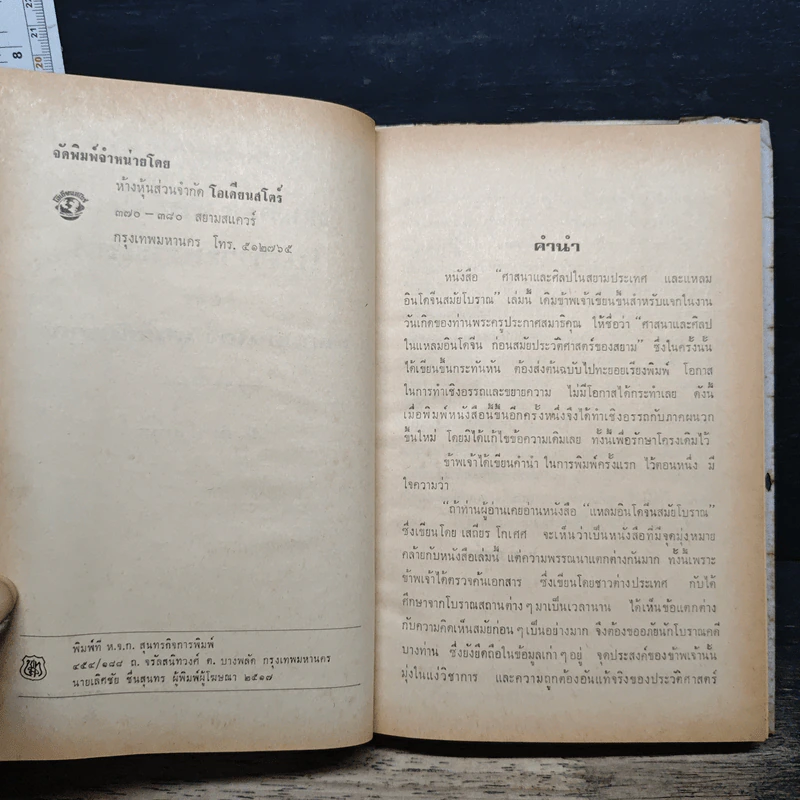 จัดพิมพ์จำหน่ายโดย
ห้างหุ้นส่วนจำกัด โอเดียนสโตร์
๓๗๐ – ๓๘๐ สยามสแควร์
กรุงเทพมหานคร โทร. ๕๑๒๗๖๕
พิมพ์ที่ ห.จ.ก. สุนทรกิจการพิมพ์
๔๕๔/๑๘๘ ถ. จรัลสนิทวงศ์ ต. บางพลัด กรุงเทพมหานคร
นายเลิศชัย ชื่นสุนทร ผู้พิมพ์ผู้โฆษณา ๒๕๑๗
คำนำ
หนังสือ "ศาสนาและศิลปในสยามประเทศ และแหลม
อินโดจีนสมัยโบราณ" เล่มนี้ เดิมข้าพเจ้าเขียนขึ้นสำหรับแจกในงาน
วันเกิดของท่านพระครูประกาศสมาธิคุณ ให้ชื่อว่า "ศาสนาและศิลป
ในแหลมอินโดจีน ก่อนสมัยประวัติศาสตร์ของสยาม" ซึ่งในครั้งนั้น
ได้เขียนขึ้นกระทันหัน ต้องส่งต้นฉบับไปทะยอยเรียงพิมพ์ โอกาส
ในการทำเชิงอรรถและขยายความ ไม่มีโอกาสได้กระทำเลย ดังนี้
เมื่อพิมพ์หนังสือนี้ขึ้นอีกครั้งหนึ่งจึงได้ทำเชิงอรรถกับภาคผนวก
ขึ้นใหม่ โดยมิได้แก้ไขข้อความเดิมเลย ทั้งนี้เพื่อรักษาโครงเดิมไว้
ข้าพเจ้าได้เขียนคำนำ ในการพิมพ์ครั้งแรก ไว้ตอนหนึ่ง มี
ใจความว่า
"ถ้าท่านผู้อ่านเคยอ่านหนังสือ "แหลมอินโดจีนสมัยโบราณ"
ซึ่งเขียนโดย เสถียร โกเศศ จะเห็นว่าเป็นหนังสือที่มีจุดมุ่งหมาย
คล้ายกับหนังสือเล่มนี้ แต่ความพรรณนาแตกต่างกันมาก ทั้งนี้เพราะ
ข้าพเจ้าได้ตรวจค้นเอกสาร ซึ่งเขียนโดยชาวต่างประเทศ กับได้
ศึกษาจากโบราณสถานต่าง ๆ มาเป็นเวลานาน ได้เห็นข้อแตกต่าง
กับความคิดเห็นสมัยก่อน ๆ เป็นอย่างมาก จึงต้องขออภัยนักโบราณคดี
บางท่าน ซึ่งยังยึดถือในข้อมูลเก่า ๆ อยู่ จุดประสงค์ของข้าพเจ้านั้น
มุ่งในแง่วิชาการ และความถูกต้องอันแท้จริงของประวัติศาสตร์
8
20
21
22